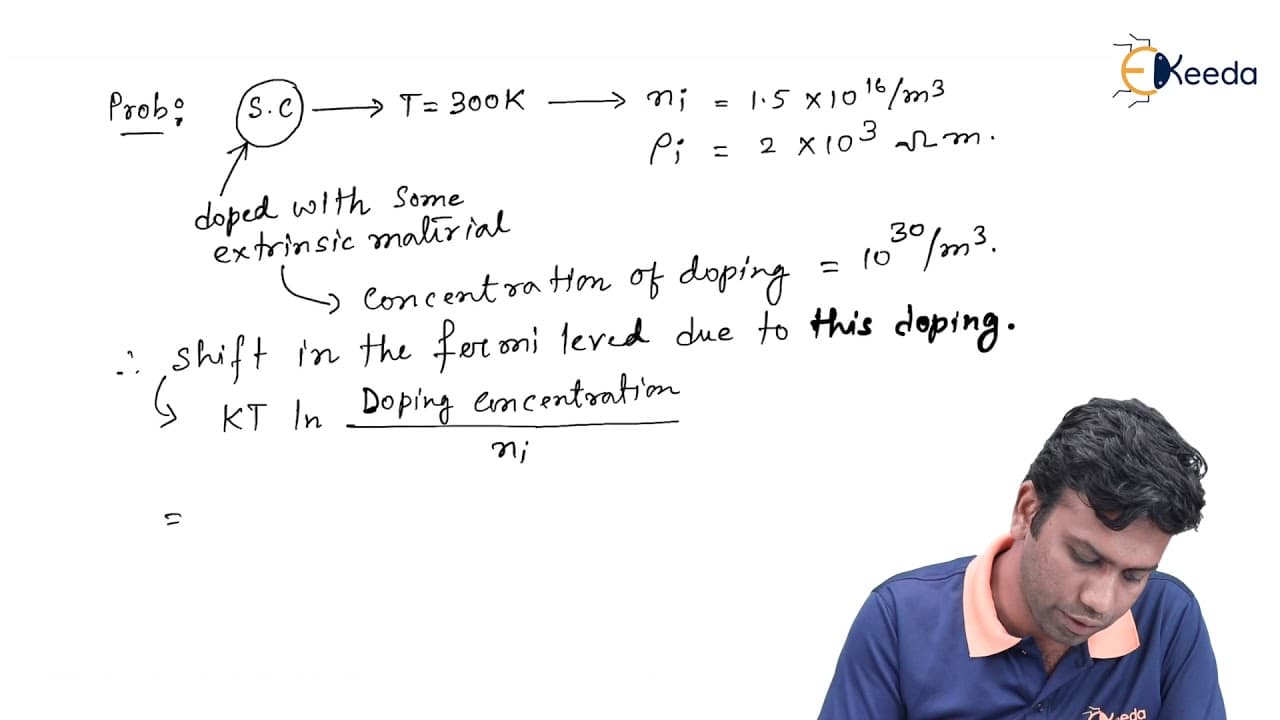 EKeeda
Prob: S.C → T = 300K → ni = 1.5 × 10^16/m3
ρi = 2 × 10^3 Ωm.
doped with some
extrinsic matirial
Concentration of doping = 10^30/m3.
∴ shift in the fermi level due to this doping.
KT ln Doping concentration
ni
=
Keeda